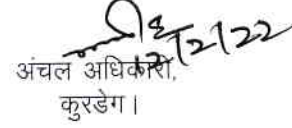 12/2/22
अंचल अधिकारी,
कुरडेग।